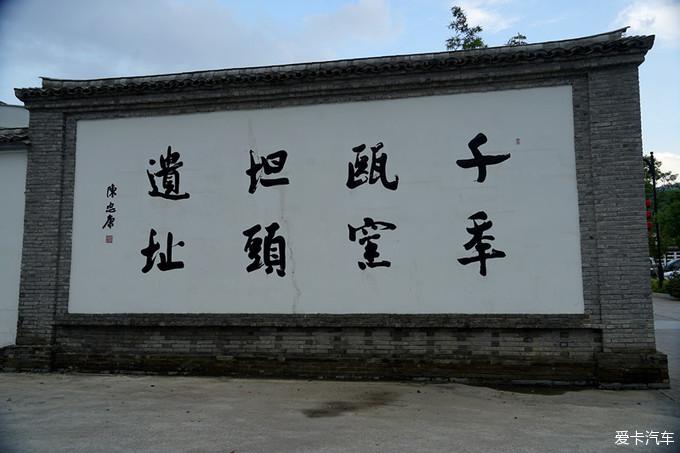 千年
甌窯
坦頭
遺址
陳忠康
爱卡汽车